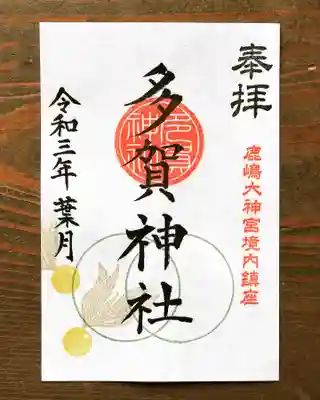 奉拝
鹿嶋大神宮境内鎮座
多賀神社
令和三年 葉月